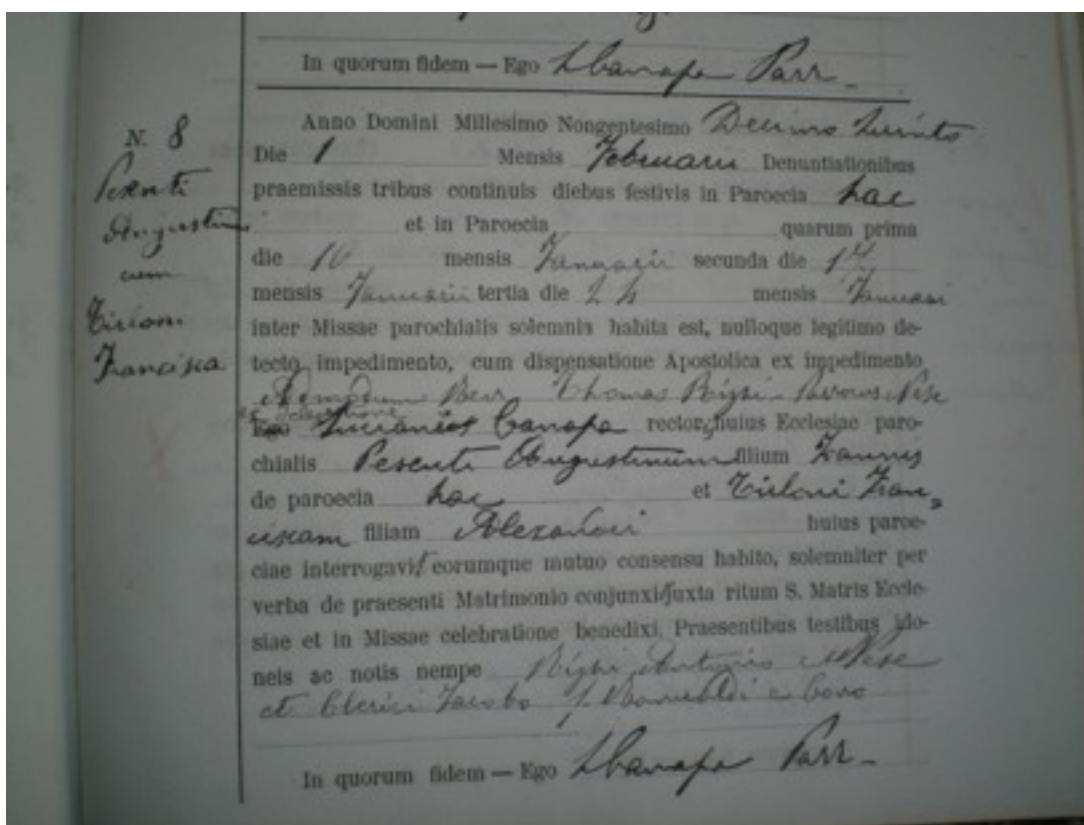 In quorum fidem — Ego L Canapa Parr.
N. 8
Pesenti
Augustinum
cum
Tirloni
Francisca
Anno Domini Millesimo Nongentesimo Decimo Quinto
Die 1 Mensis Februarii Denuntiationibus
praemissis tribus continuis diebus festivis in Paroecia hac
et in Paroecia quarum prima
die 10 mensis Januarii secunda die 17
mensis Januarii tertia die 24 mensis Januari
inter Missae parochialis solemnia habita est, nulloque legitimo de-
tecto impedimento, cum dispensatione Apostolica ex impedimento
Admodum Rev. Thomas Bighi
ex delegatione
Ego Canapa rector huius Ecclesiae paro-
chialis Pesenti Augustinum filium Joannis
de paroecia hac et Tirloni Fran-
ciscam filiam Alexandri huius paroe-
ciae interrogavit eorumque mutuo consensu habito, solemniter per
verba de praesenti Matrimonio conjunxit juxta ritum S. Matris Eccle-
siae et in Missae celebratione benedixi, Praesentibus testibus ido-
neis ac notis nempe Bighi Antonio
et Clerici Jacobo f. Romualdi
In quorum fidem — Ego L Canapa Parr.